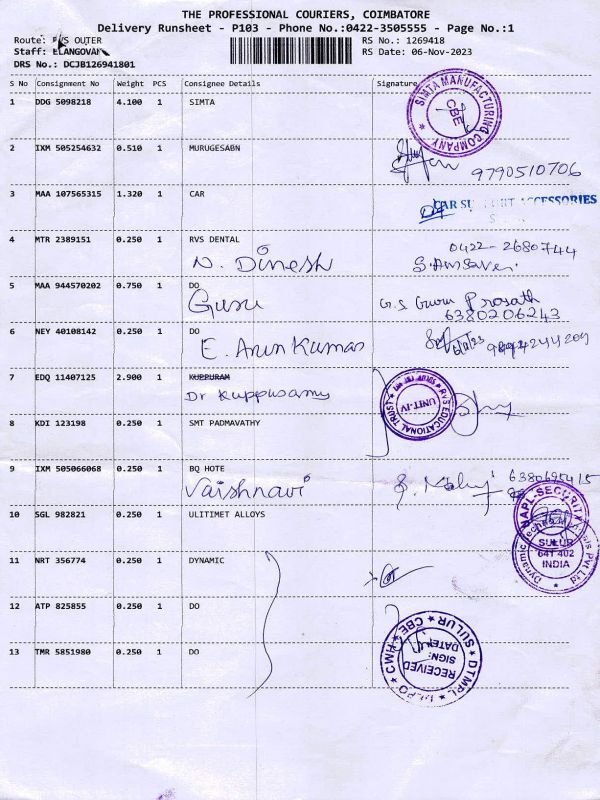 THE PROFESSIONAL COURIERS, COIMBATORE
Delivery Runsheet - P103 - Phone No.:0422-3505555 - Page No.:1
Route: RVS OUTER
RS No.: 1269418
Staff: ELANGOVAN
RS Date: 06-Nov-2023
DRS No.: DCJB126941801
S No Consignment No Weight PCS Consignee Details Signature
1 DDG 5098218 4.100 1 SIMTA
SIMTA MANUFACTURING COMPANY CBE
2 IXM 505254632 0.510 1 MURUGESABN
9790510706
3 MAA 107565315 1.320 1 CAR
CAR SUPPORT ACCESSORIES
4 MTR 2389151 0.250 1 RVS DENTAL
0422-2680744
N. Dinesh
5 MAA 944570202 0.750 1 DO
Guru G.S Guru Prasath
6380206243
6 NEY 40108142 0.250 1 DO
E. Arun Kumar
7 EDQ 11407125 2.900 1 KUPPURAM
Dr Kuppusamy
RVS EDUCATIONAL TRUST UNIT-IV
8 KDI 123198 0.250 1 SMT PADMAVATHY
9 IXM 505066068 0.250 1 BQ HOTE
Vaishnavi
6380695415
10 SGL 982821 0.250 1 ULITIMET ALLOYS
MAPL-SECURITY
SULUR
641 402
INDIA
11 NRT 356774 0.250 1 DYNAMIC
12 ATP 825855 0.250 1 DO
13 TMR 5851980 0.250 1 DO
DTMPL SULUR CBE CWH
RECEIVED
SIGN:
DATE: